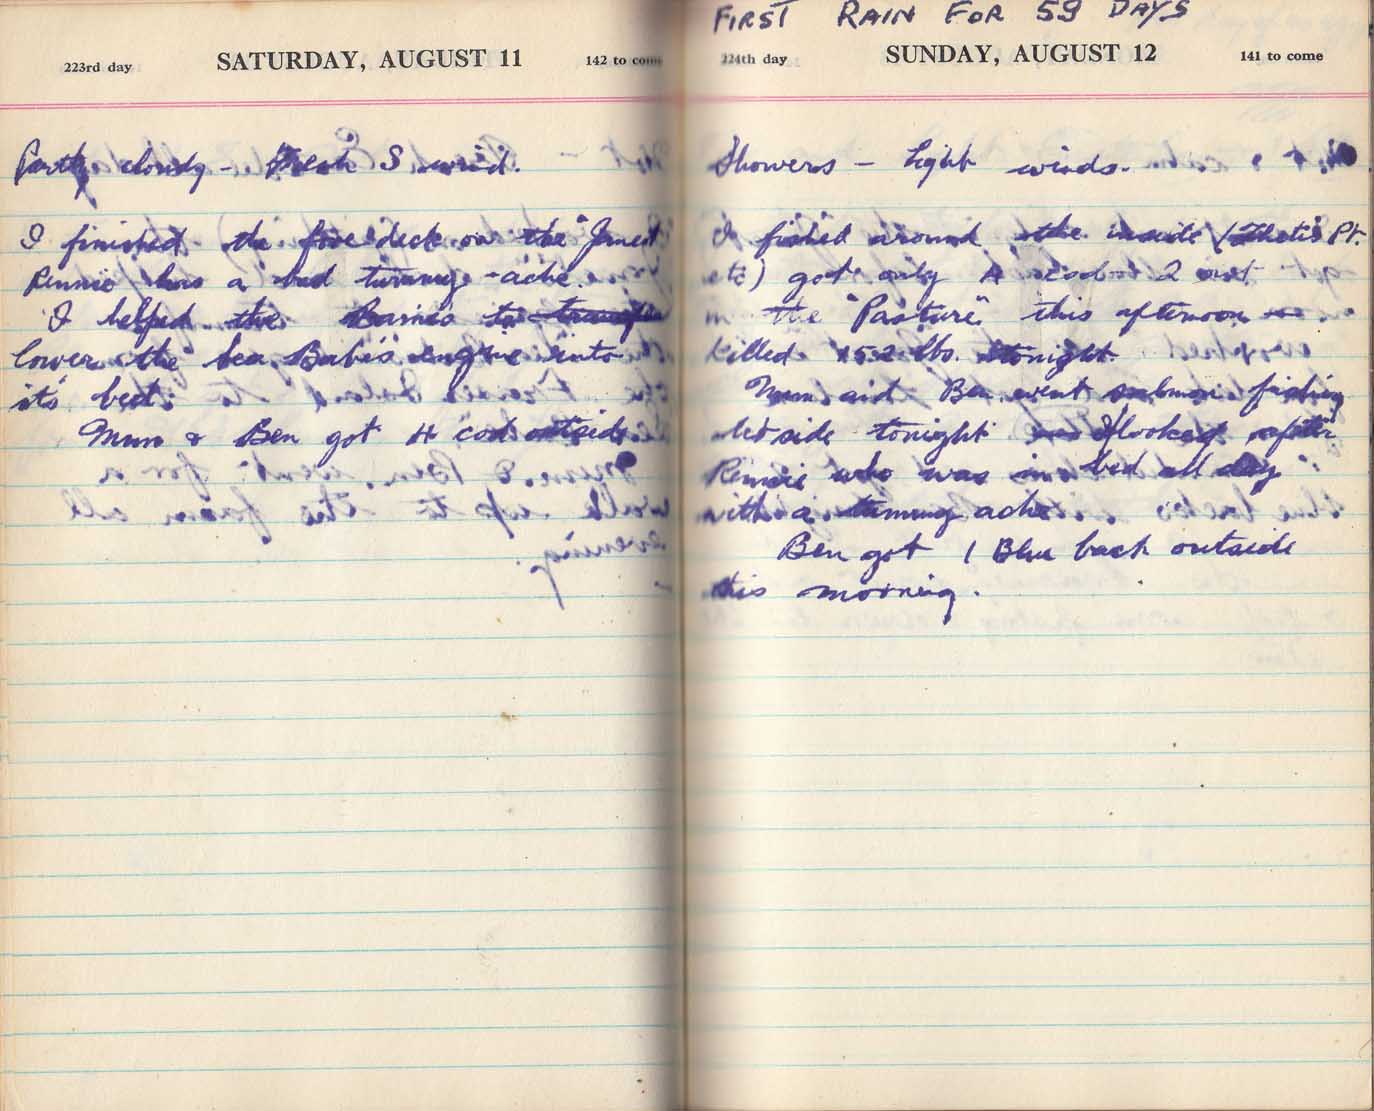 223rd day SATURDAY, AUGUST 11 142 to come
Partly cloudy - Fresh S wind.
I finished the fore deck on the "Janet"
Rennie has a bad tummy-ache.
I helped the Baines to
lower the Sea Babe's engine into
it's bed.
Mum & Ben got 4 cod outside.
FIRST RAIN FOR 59 DAYS
224th day SUNDAY, AUGUST 12 141 to come
Showers - Light winds.
I fished around the inside (Thetis Pt.
etc) got only 4 cod 2 out
in the "Pasture" this afternoon
Killed 152 lbs. tonight
Mum and Ben went salmon fishing
outside tonight I looked after
Rennie who was in bed all day
with a tummy ache
Ben got 1 Blue back outside
this morning.